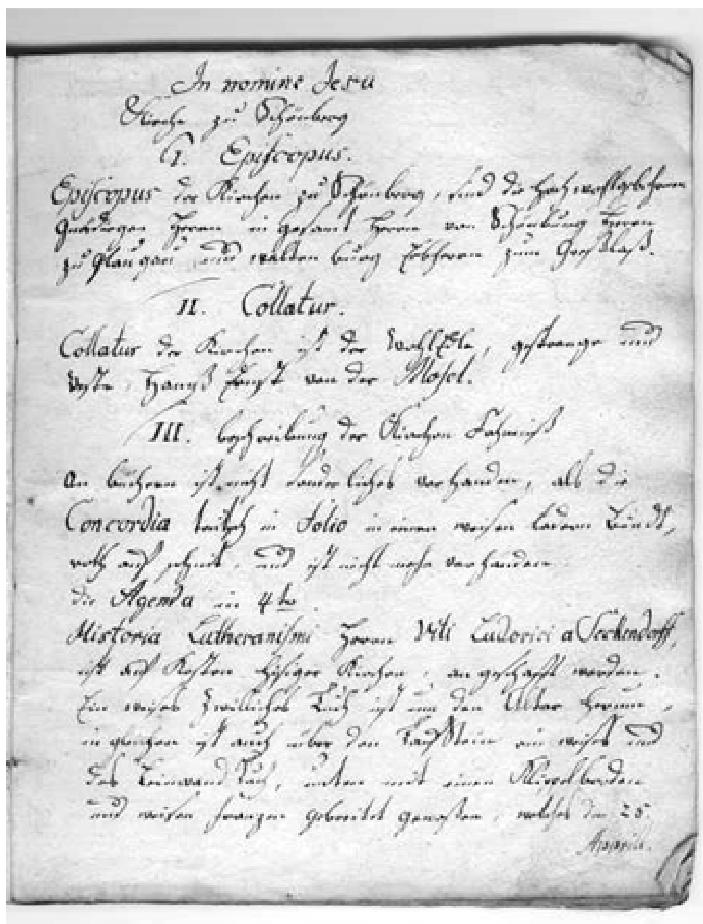 In nomine Jesu
Kirche zu Schönberg
I. Episcopus.
Episcopus der Kirchen zu Schönberg, sind die Hochwohlgebohrnen
Gnädigen Herren in gesamt Herren von Schönburg Herren
zu Glauchau und Waldenburg
II. Collatur.
Collatur der Kirchen ist der WohlEdle, gestrenge und
Veste, Hannß Ernst von der Mosel.
III. beschreibung der Kirchen
An büchern ist nicht sonderliches vorhanden, als die
Concordia teutsch in Folio in einen weisen Ledern Bandt,
roth auf schnit, und ist nicht mehr vorhanden
die Agenda in 4to
Historia Lutheranismi Herrn Viti Ludovici a Seckendorff,
ist auf Kosten hisiger Kirchen, an geschafft worden.
Ein weises Zwilliches Tuch ist um den Altar herum,
in gleichen ist auch über den TauffStein ein weises
Leinwand Tuch, unten mit einen
und weisen franzen gebreitet gewesen, welches den 25.
Aprill.